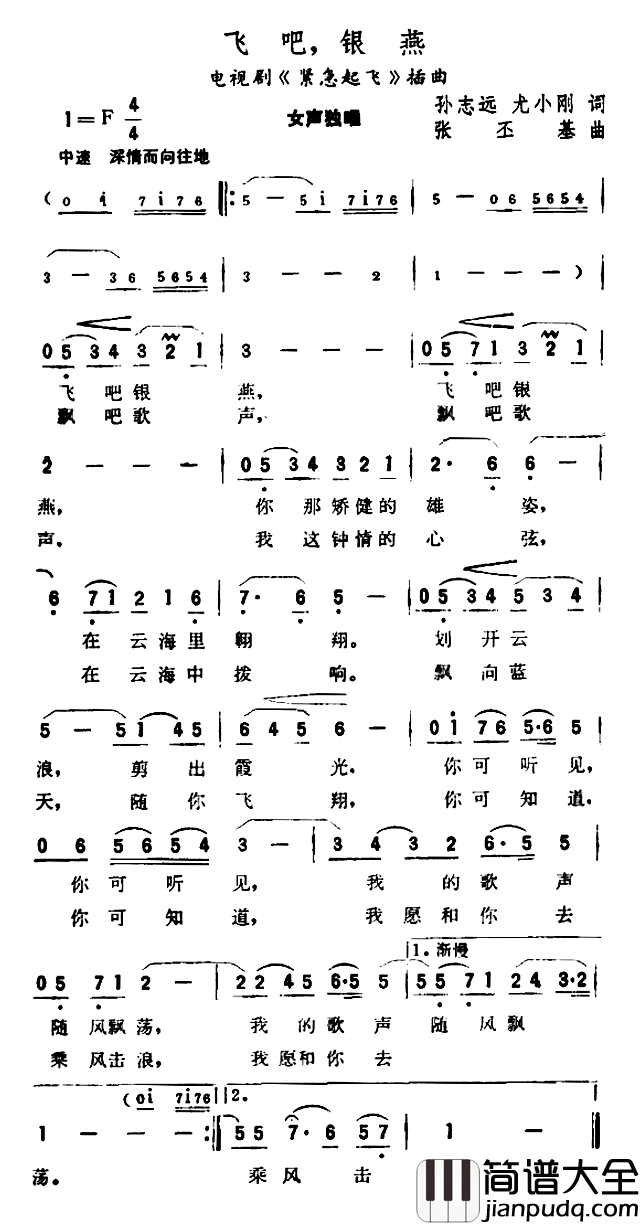 飞吧，银燕
电视剧《紧急起飞》插曲
1=F 4/4
女声独唱
孙志远 尤小刚 词
张丕基 曲
中速 深情而向往地
(0 i 7i76 ‖: 5 — 5i 7i76 | 5 — 06 5654 |
3 — 36 5654 | 3 — — 2 | 1 — — ) |
0534 321 | 3 — — — | 0571 321 |
飞吧银 燕， 飞吧银
飘吧歌 声， 飘吧歌
2 — — — | 0534 3321 | 2· 6 6 — |
燕， 你那矫健的雄 姿，
声。 我这钟情的心 弦，
6 71 2 16 | 7· 6 5 — | 0534 534 |
在云海里翱 翔。 划开云
在云海中拨 响。 飘向蓝
5 — 51 45 | 645 6 — | 0i 76 5·6 5 |
浪， 剪出霞 光。 你可听见，
天， 随你飞 翔， 你可知道。
06 5654 3 — | 3432 6·5 5 |
你可听 见， 我的歌声
你可知 道， 我愿和你去
1。渐慢
05 71 2 — | 2245 6·5 5 | 5571 24 3·2 |
随风飘荡， 我的歌声 随风飘
乘风击浪， 我愿和你去
(0i 7i76 2。
1 — — — :‖ 55 7·6 57 | 1 — — — ‖
荡。 乘风击
简谱大全
jianpudq.com